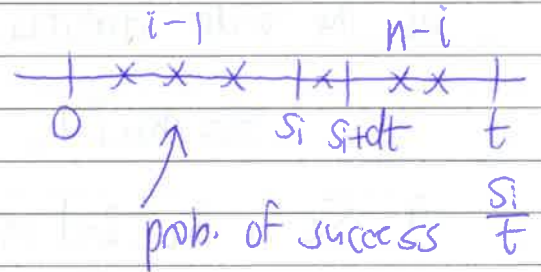 i-1 n-i
0 si si+dt t
prob. of success si/t